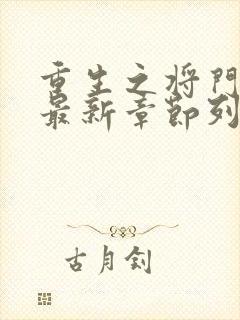 重生之将門
最新章節列
古月釗